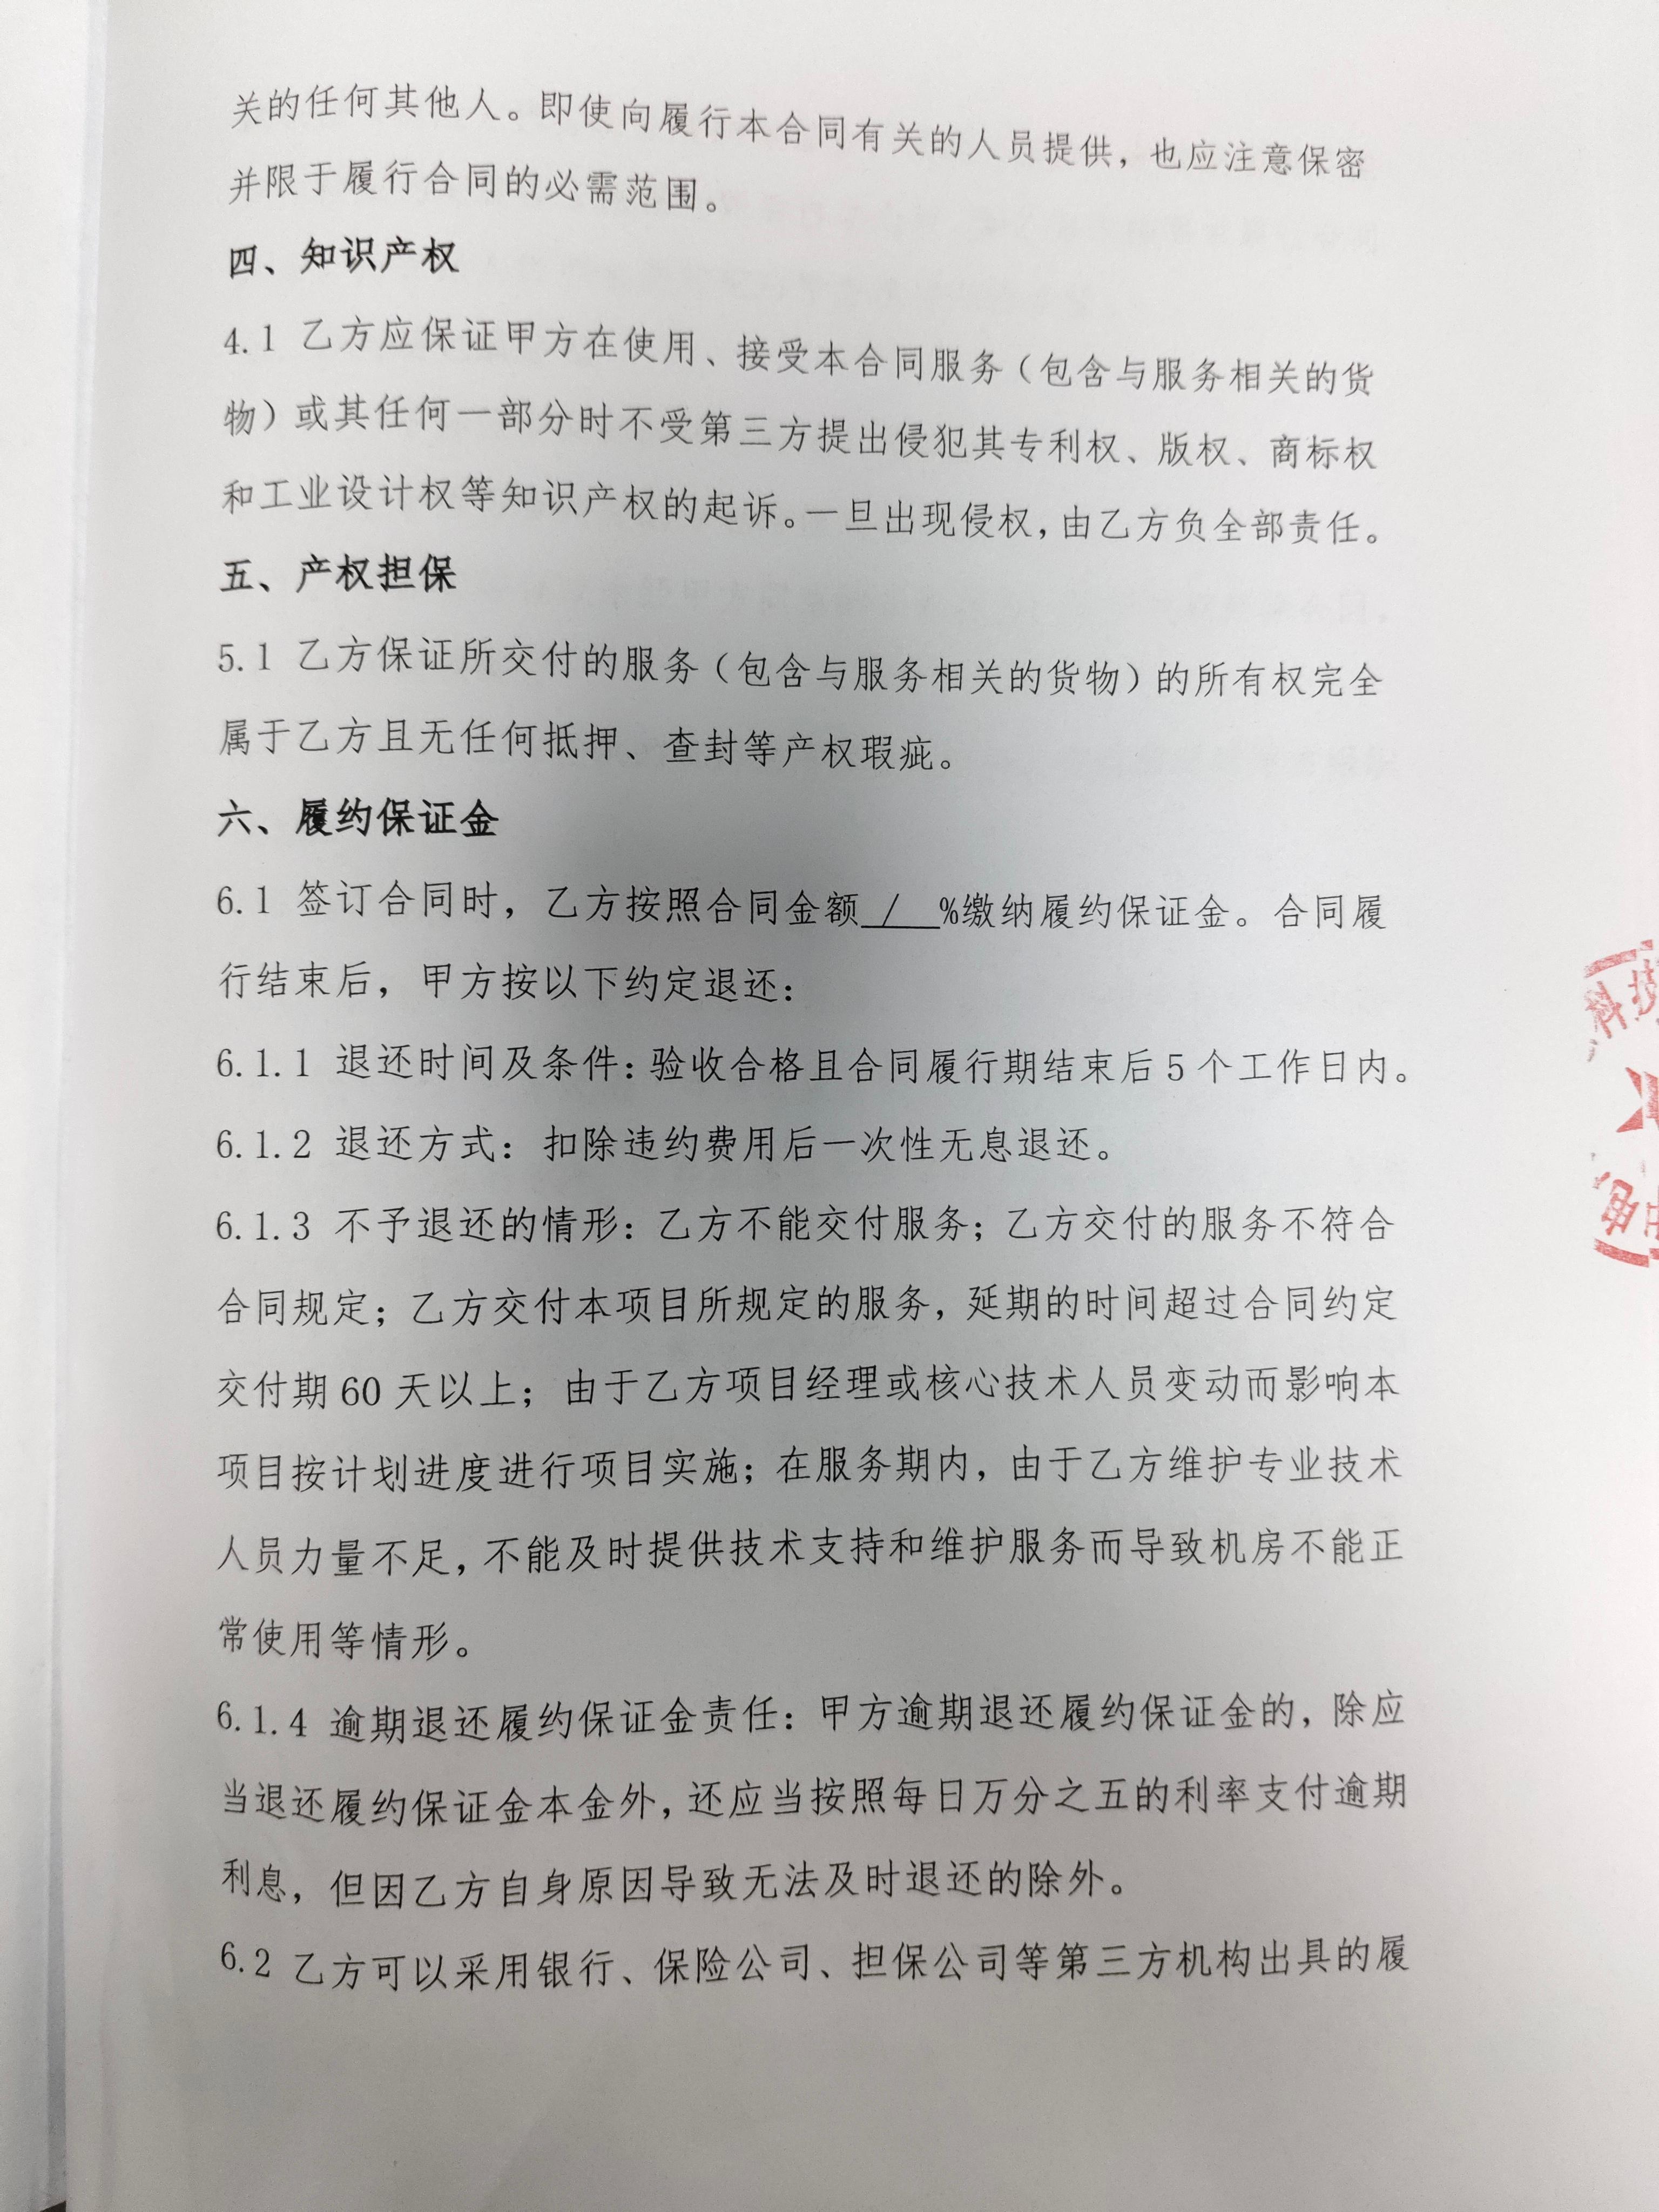 关的任何其他人。即使向履行本合同有关的人员提供，也应注意保密
并限于履行合同的必需范围。
四、知识产权
4.1 乙方应保证甲方在使用、接受本合同服务（包含与服务相关的货
物）或其任何一部分时不受第三方提出侵犯其专利权、版权、商标权
和工业设计权等知识产权的起诉。一旦出现侵权，由乙方负全部责任。
五、产权担保
5.1 乙方保证所交付的服务（包含与服务相关的货物）的所有权完全
属于乙方且无任何抵押、查封等产权瑕疵。
六、履约保证金
6.1 签订合同时，乙方按照合同金额 / %缴纳履约保证金。合同履
行结束后，甲方按以下约定退还：
6.1.1 退还时间及条件：验收合格且合同履行期结束后5个工作日内。
6.1.2 退还方式：扣除违约费用后一次性无息退还。
6.1.3 不予退还的情形：乙方不能交付服务；乙方交付的服务不符合
合同规定；乙方交付本项目所规定的服务，延期的时间超过合同约定
交付期60天以上；由于乙方项目经理或核心技术人员变动而影响本
项目按计划进度进行项目实施；在服务期内，由于乙方维护专业技术
人员力量不足，不能及时提供技术支持和维护服务而导致机房不能正
常使用等情形。
6.1.4 逾期退还履约保证金责任：甲方逾期退还履约保证金的，除应
当退还履约保证金本金外，还应当按照每日万分之五的利率支付逾期
利息，但因乙方自身原因导致无法及时退还的除外。
6.2 乙方可以采用银行、保险公司、担保公司等第三方机构出具的履
科技